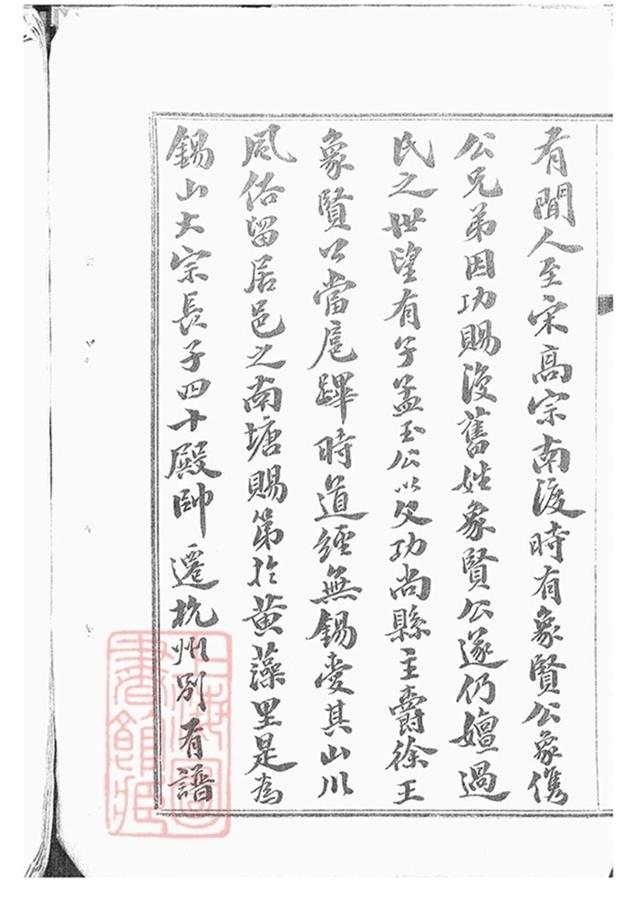 有聞人至宋高宗南渡時有象賢公象儁
公兄弟因功賜復舊姓象賢公遂仍嬗過
氏之世望有子孟玉公以父功尚縣主爵徐王
象賢公當扈蹕時道經無錫愛其山川
風俗留居邑之南塘賜第於黃藻里是為
錫山大宗長子四十殿帥遷杭州別有譜
上海圖
書館藏